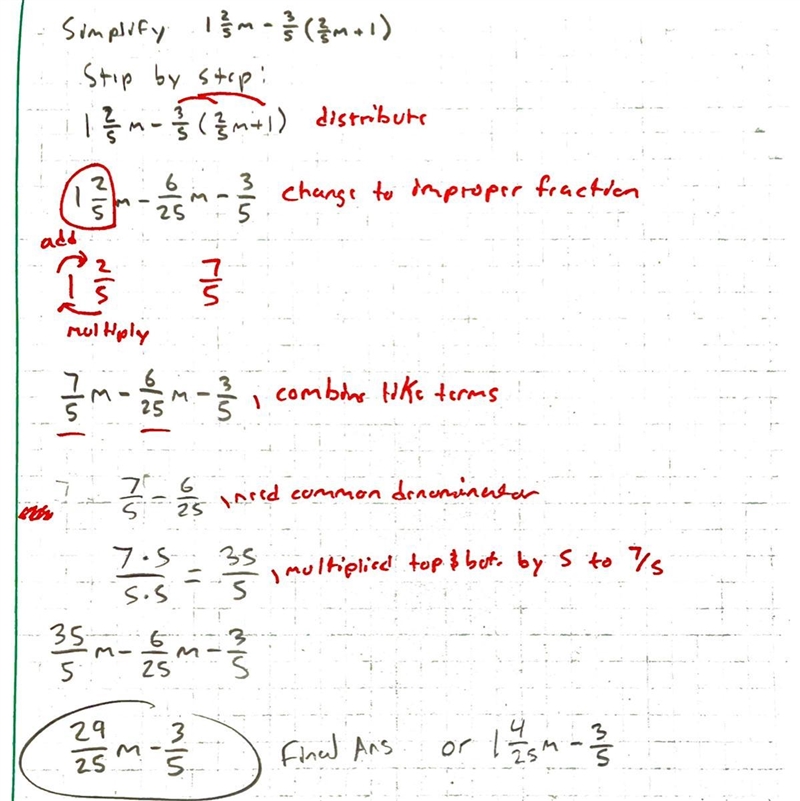 Simplify 1 2/5 m - 3/5 (2/5 m + 1)
Step by step:
1 2/5 m - 3/5 (2/5 m + 1) distribute
1 2/5 m - 6/25 m - 3/5 change to improper fraction
add
1 2/5 7/5
multiply
7/5 m - 6/25 m - 3/5, combine like terms
7/5 - 6/25, need common denominator
7·5/5·5 = 35/5, multiplied top & bot. by 5 to 7/5
35/5 m - 6/25 m - 3/5
29/25 m - 3/5 Final Ans or 1 4/25 m - 3/5